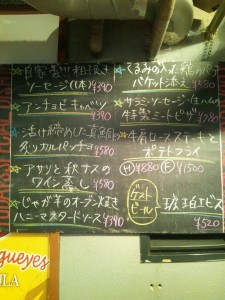 自家製!!! 粗挽き
ソーセージ(1本) ¥390
アンチョビキャベツ
¥390
活け締めした真鯛の
カルパッチョ ¥580
アサリと秋ナスの
ワイン蒸し ¥580
じゃが芋のオーブン焼き
ハニーマスタードソース ¥390
くるみの入った鶏のパテ
バケット添え ¥380
サラミ・ソーセージ・生ハムの
特製ミートピザ ¥780
牛肩ロースステーキと
ポテトフライ
(H) ¥880 (F) ¥1500
ゲスト
ビール
琥珀ヱビス
¥520
gueyes
ILA